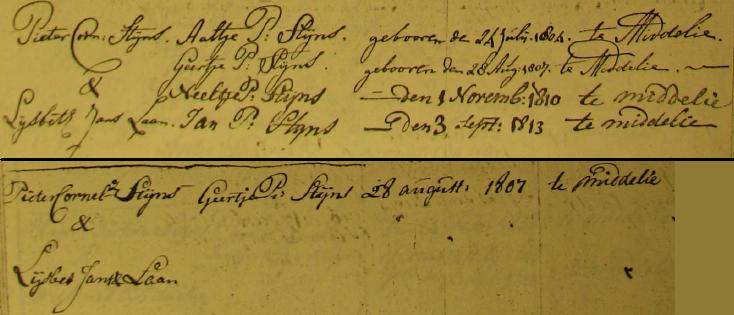 Pieter Corn: Stijns. Aaltje P: Stijns. gebooren de 24 Julij: 1804. te Middelie.
Geertje P: Stijns. gebooren den 28 Aug: 1807. te Middelie.
& Neeltje P: Stijns — den 1 Novemb: 1810 te middelie
Lijsbeth Jans Laan. Jan P: Stijns — den 3 Sept: 1813 te middelie
Pieter Cornel:s Stijns Geertje P: Stijns 28 augustt: 1807 te middelie
&
Lijsbet Jans Laan